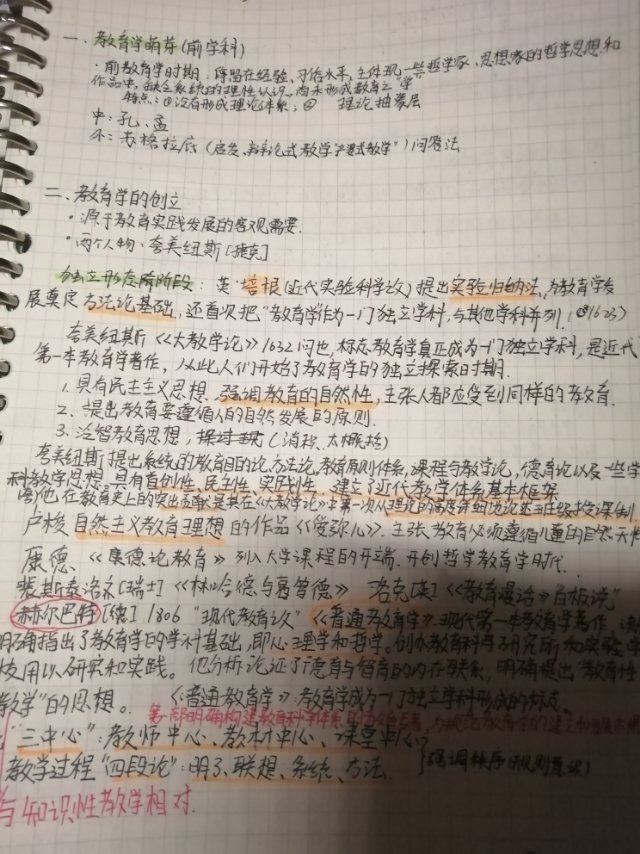 一、教育学萌芽(前学科)
·前教育学时期:停留在经验、习俗水平,主体现一些哲学家、思想家的哲学思想和
作品中,缺乏系统的理性认识,尚未形成教育之"学"
特点:①没有形成理论体系;② 理论抽象层
中:孔、孟
外:苏格拉底(启发、辩论式教学"产婆式教学")问答法
二、教育学的创立
·源于教育实践发展的客观需要.
·两个人物:夸美纽斯[捷克]
独立形态阶段:英·培根(近代实验科学)提出实验归纳法,为教育学发
展奠定方法论基础,还首次把"教育学"作为一门独立学科,与其他学科并列.(1623)
夸美纽斯《大教学论》1632问世,标志教育学真正成为一门独立学科,是近代
第一本教育学著作,从此人们开始了教育学的独立探索时期.
1.具有民主主义思想.强调教育的自然性,主张人都应受到同样的教育.
2、提出教育要遵循人的自然发展的原则.
3.泛智教育思想,
夸美纽斯提出系统的教育目的论、方法论、教育原则体系,课程与教学论,德育论以及一些学
科教学思想.具有首创性、民主性、实践性 建立了近代教学体系基本框架
他,在教育史上的突出贡献是其在《大教学论》中第一次从理论的高度详细论述班级授课制
卢梭 自然主义教育理想的作品《爱弥儿》.主张教育必须遵循儿童的自然天性
康德、《康德论教育》列入大学课程的开端.开创哲学教育学时代.
裴斯泰洛齐[瑞士]《林哈德与葛笃德》 洛克[英]《教育漫话》"白板说"
赫尔巴特[德] 1806 "现代教育之父"《普通教育学》.现代第一本教育学著作,
明确指出了教育学的学科基础,即心理学和哲学.创办教育科学研究所和实验学
校用以研究和实践。他分析论证了德育与智育的内在联系,明确提出"教育性
教学"的思想。 《普通教育学》:教育学成为一门独立学科形成的标志.
第一部明确构建教育科学体系的教育名著,
"三中心":教师中心、教材中心、课堂中心;
教学过程"四段论":明了、联想、系统、方法. }强调秩序(规则意识)
与知识性教学相对.